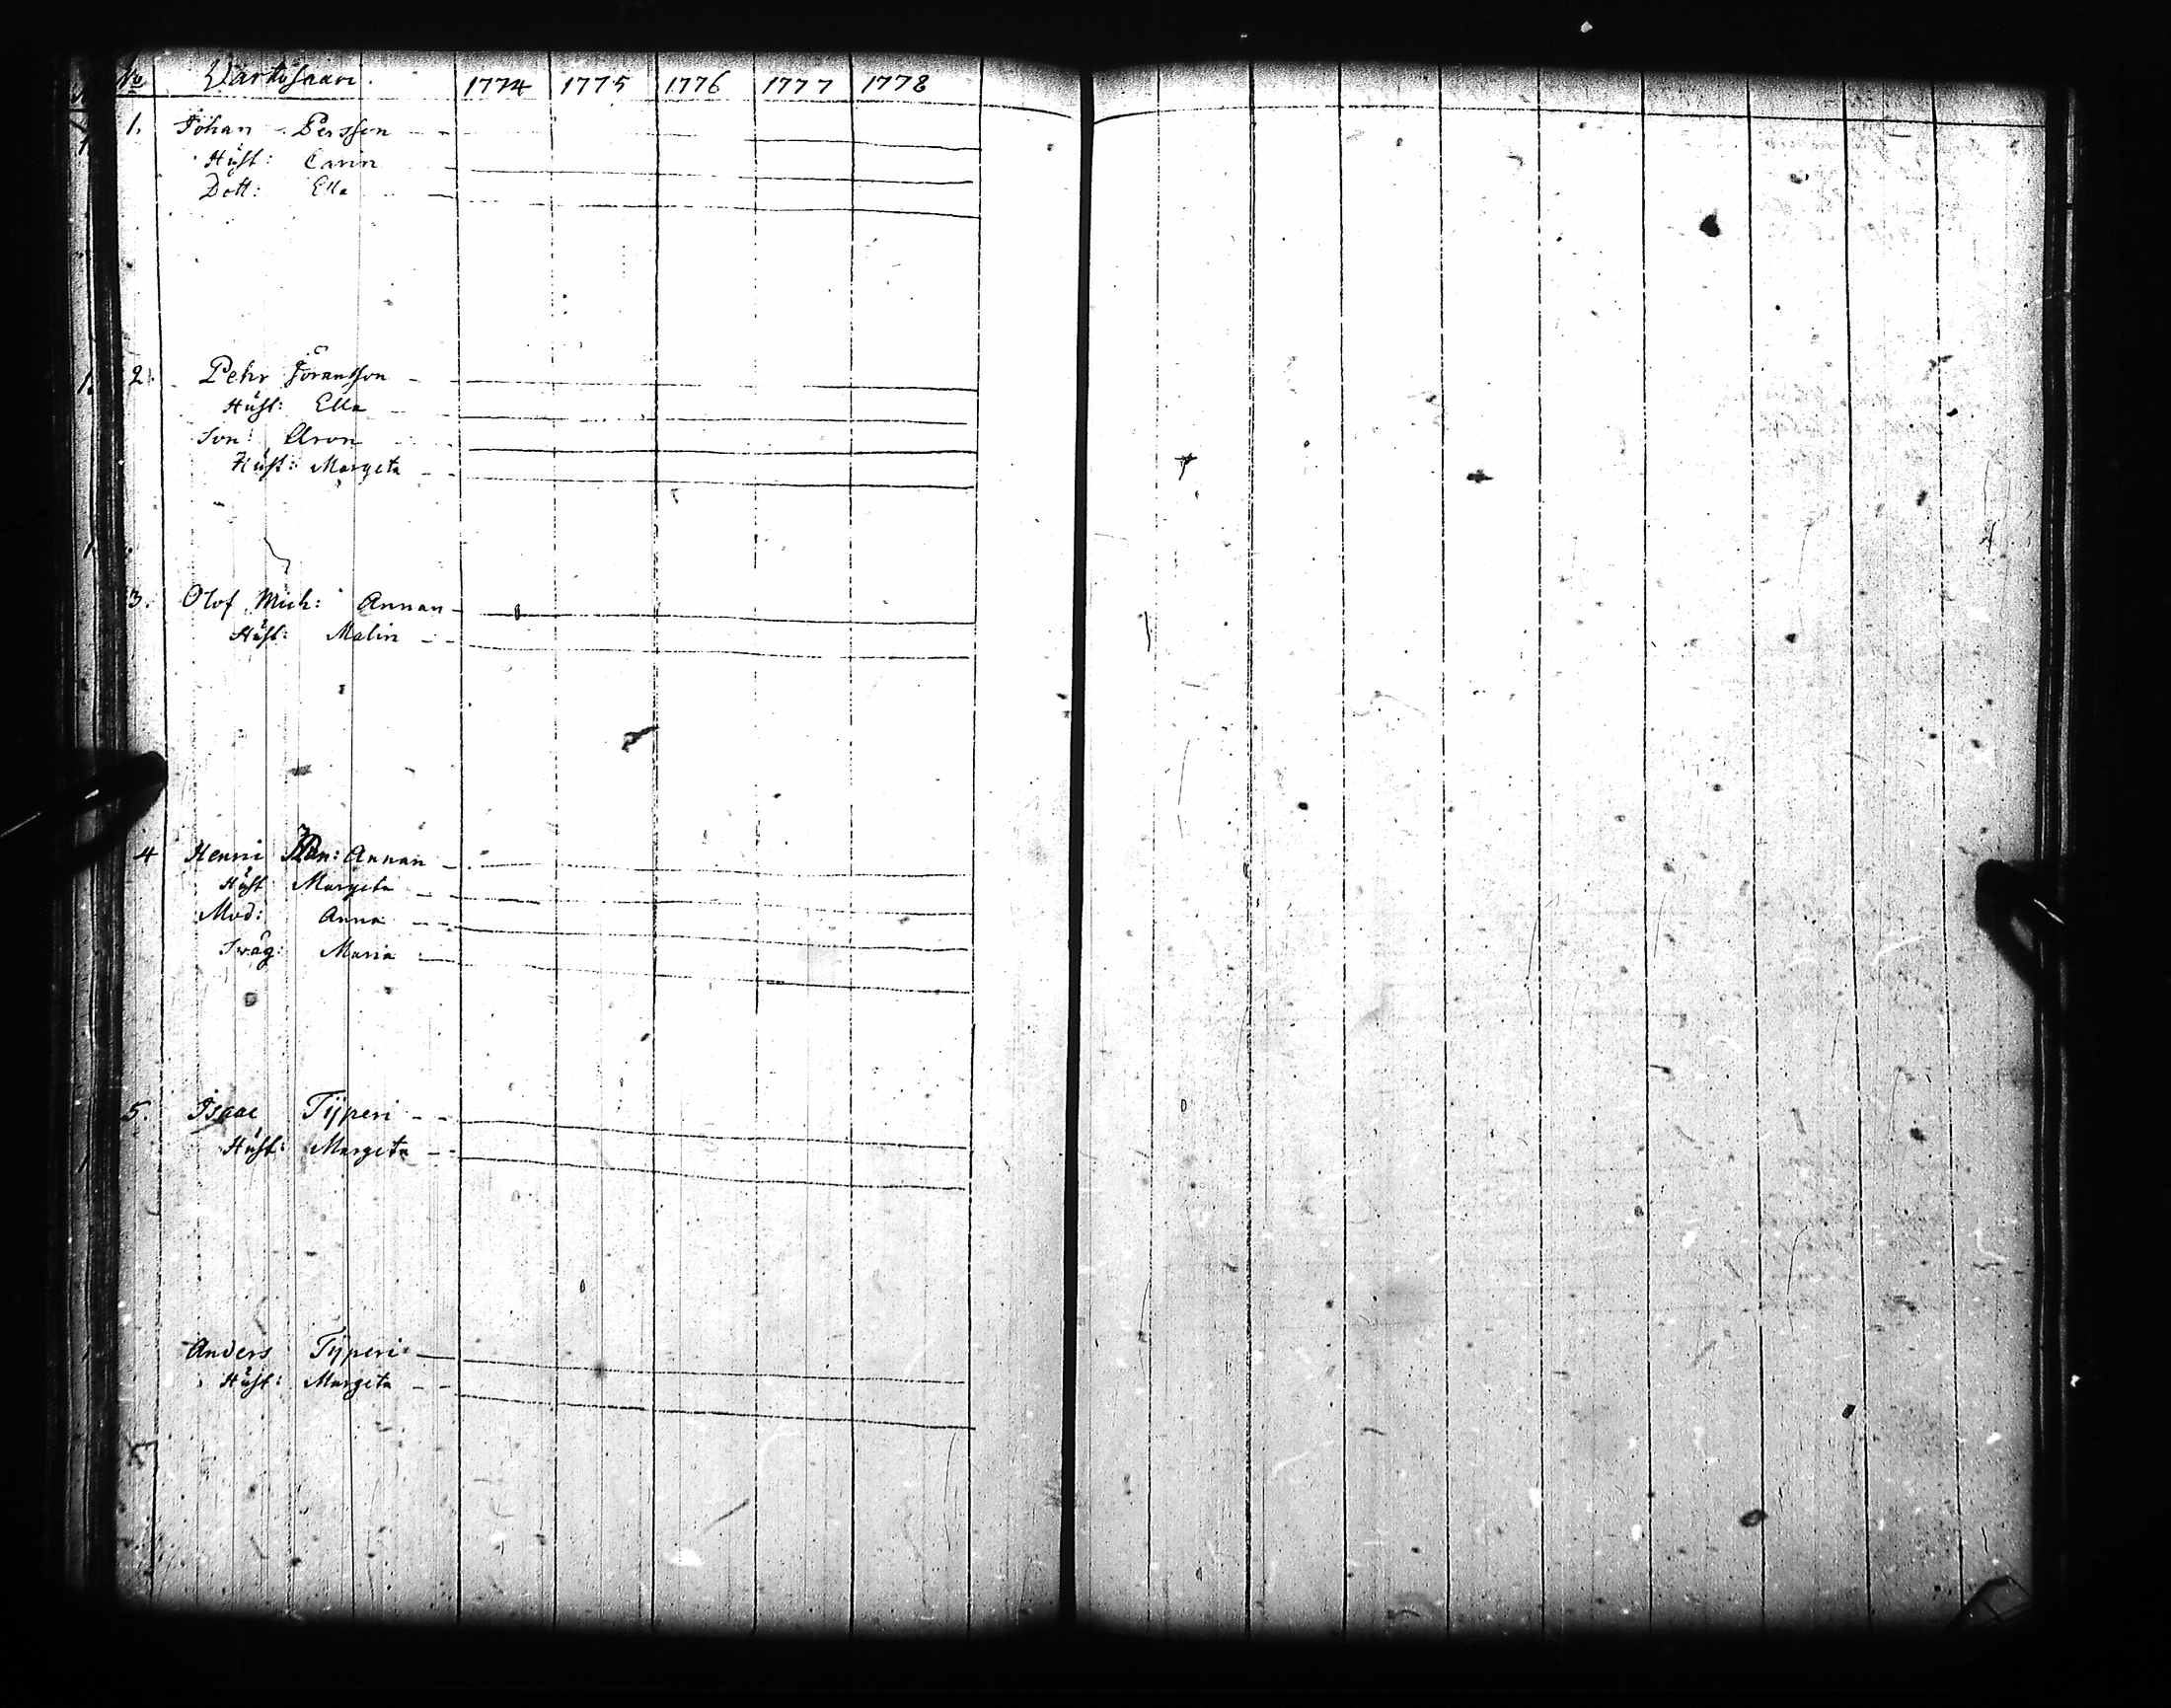 No Vartosaari. 1774 1775 1776 1777 1778
1. Johan Persson
Hust: Carin
Dott: Ella
2. Pehr Göransson
Hust: Ella
Son: Aron
Hust: Margeta
3. Olof Mich: Annan
Hust: Malin
4 Henri Annan
Hust Margeta
Mod: Anna
Swåg: Maria
5. Isaac Tÿperi
Hust: Margeta
Anders Tÿperi
Hust: Margeta